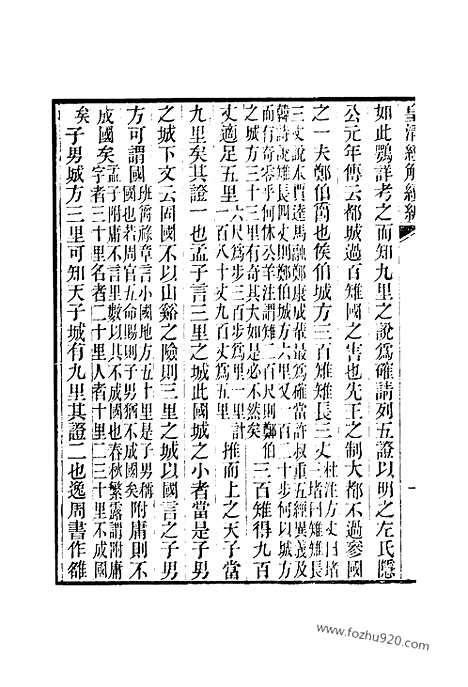 皇清經解續編
一
如此鶚詳考之而知九里之說爲確請列五證以明之左氏隱
公元年傳云都城過百雉國之害也先王之制大都不過參國
之一夫鄭伯爵也侯伯城方三百雉雉長三丈杜注方丈曰堵三堵曰雉雉長
三丈說本賈逵馬融鄭康成輩最爲確當許叔重五經異義及
韓詩說雉長四丈則鄭伯城方六里又一百二十步何以城方
而有奇零乎何休公羊注謂雉二百尺則鄭伯
之城方三十三里有奇其大如是必不然矣三百雉得九百
丈適足五里六尺爲步三百步爲里一里計一百八十丈九百丈爲五里推而上之天子當
九里矣其證一也孟子言三里之城此國城之小者當是子男
之城下文云固國不以山谿之險則三里之城以國言之子男
方可謂國班爵祿章言小國地方五十里是子男稱國也若周官五命賜則子男猶不成國矣附庸則不
成國矣孟子附庸不言里數以其不成國也春秋繁露謂附庸字者三十里名者二十里人者十里二三十里不成國
矣子男城方三里可知天子城有九里其證二也逸周書作雒
www.fozhu920.com